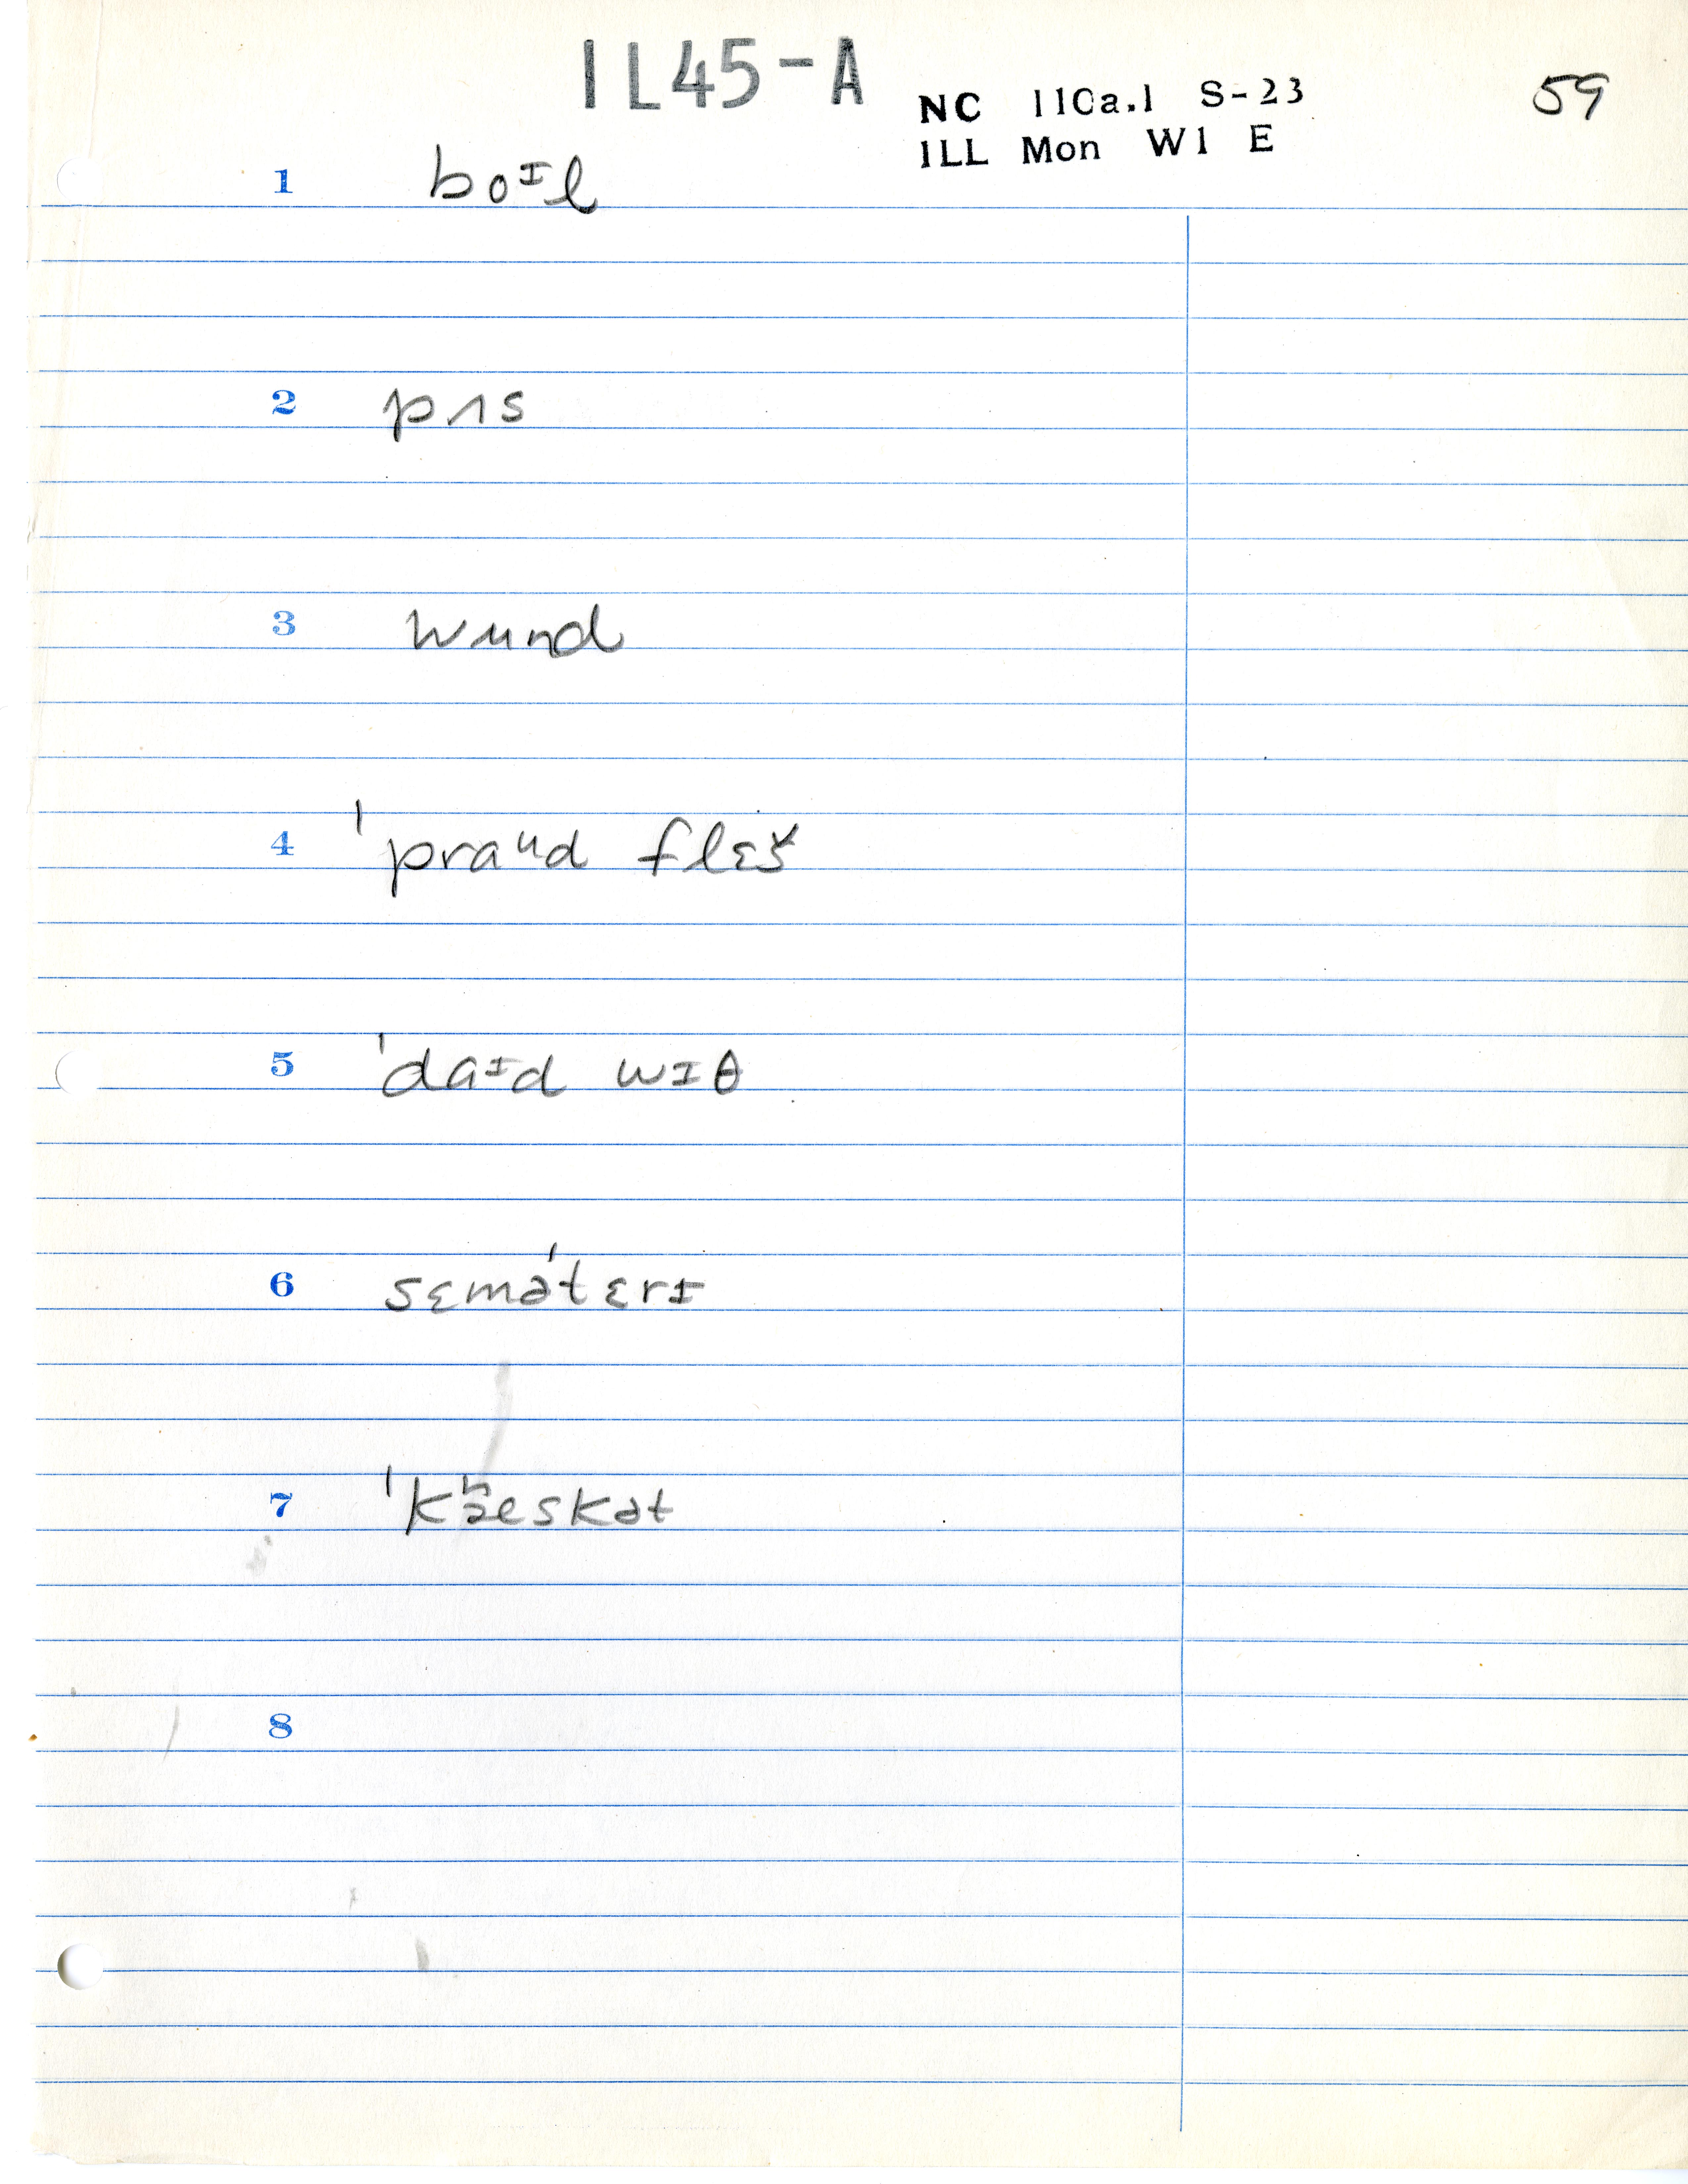 IL45-A
NC 110a.1 S-23 59
ILL Mon W1 E
1 boᶦl
2 pʌs
3 wund
4 ˈpraᵘd flɛš
5 ˈdaᶦd wɪθ
6 sɛməˈtɛrɪ
7 ˈkʰæskət
8